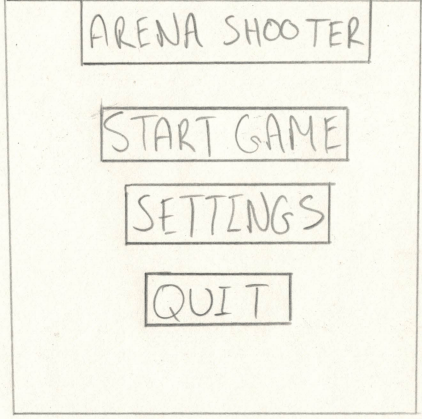 ARENA SHOOTER
START GAME
SETTINGS
QUIT